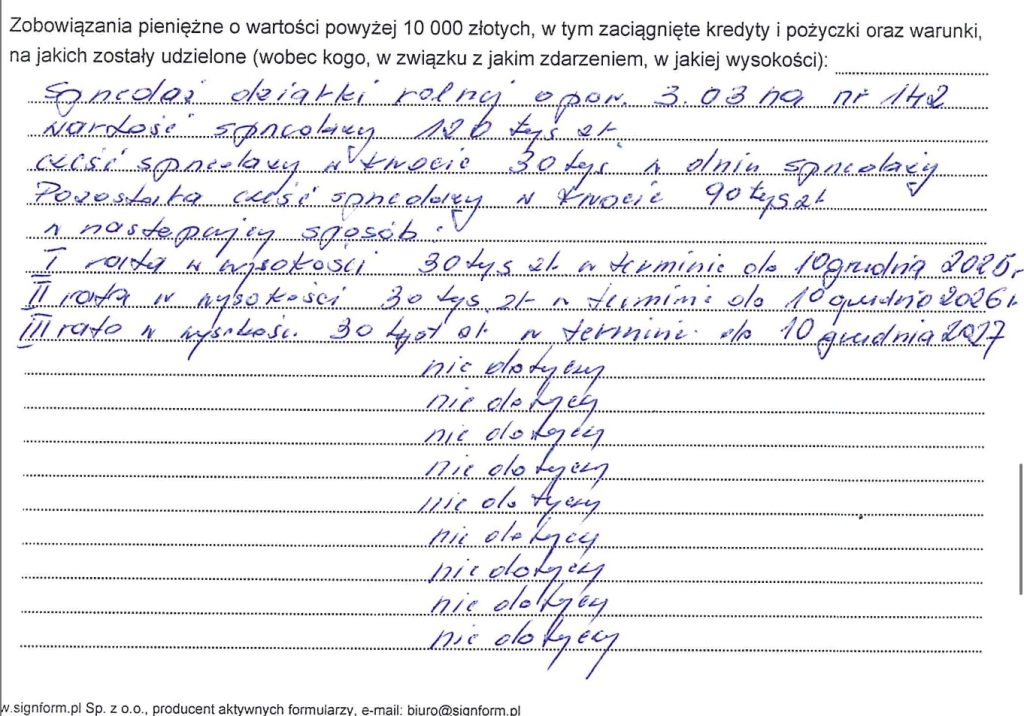 Zobowiązania pieniężne o wartości powyżej 10 000 złotych, w tym zaciągnięte kredyty i pożyczki oraz warunki,
na jakich zostały udzielone (wobec kogo, w związku z jakim zdarzeniem, w jakiej wysokości):
Sprzedaż działki rolnej o pow. 3.03 ha nr 142
wartość sprzedaży 120 tyś zł
część sprzedaży w kwocie 30 tyś w dniu sprzedaży
Pozostała część sprzedaży w kwocie 90 tyś zł
w następujący sposób:
I rata w wysokości 30 tyś zł w terminie do 10 grudnia 2025 r
II rata w wysokości 30 tyś zł w terminie do 10 grudnia 2026 r
III rata w wysokości 30 tyś zł w terminie do 10 grudnia 2027
nie dotyczy
nie dotyczy
nie dotyczy
nie dotyczy
nie dotyczy
nie dotyczy
nie dotyczy
nie dotyczy
nie dotyczy
w.signform.pl Sp. z o.o., producent aktywnych formularzy, e-mail: biuro@signform.pl